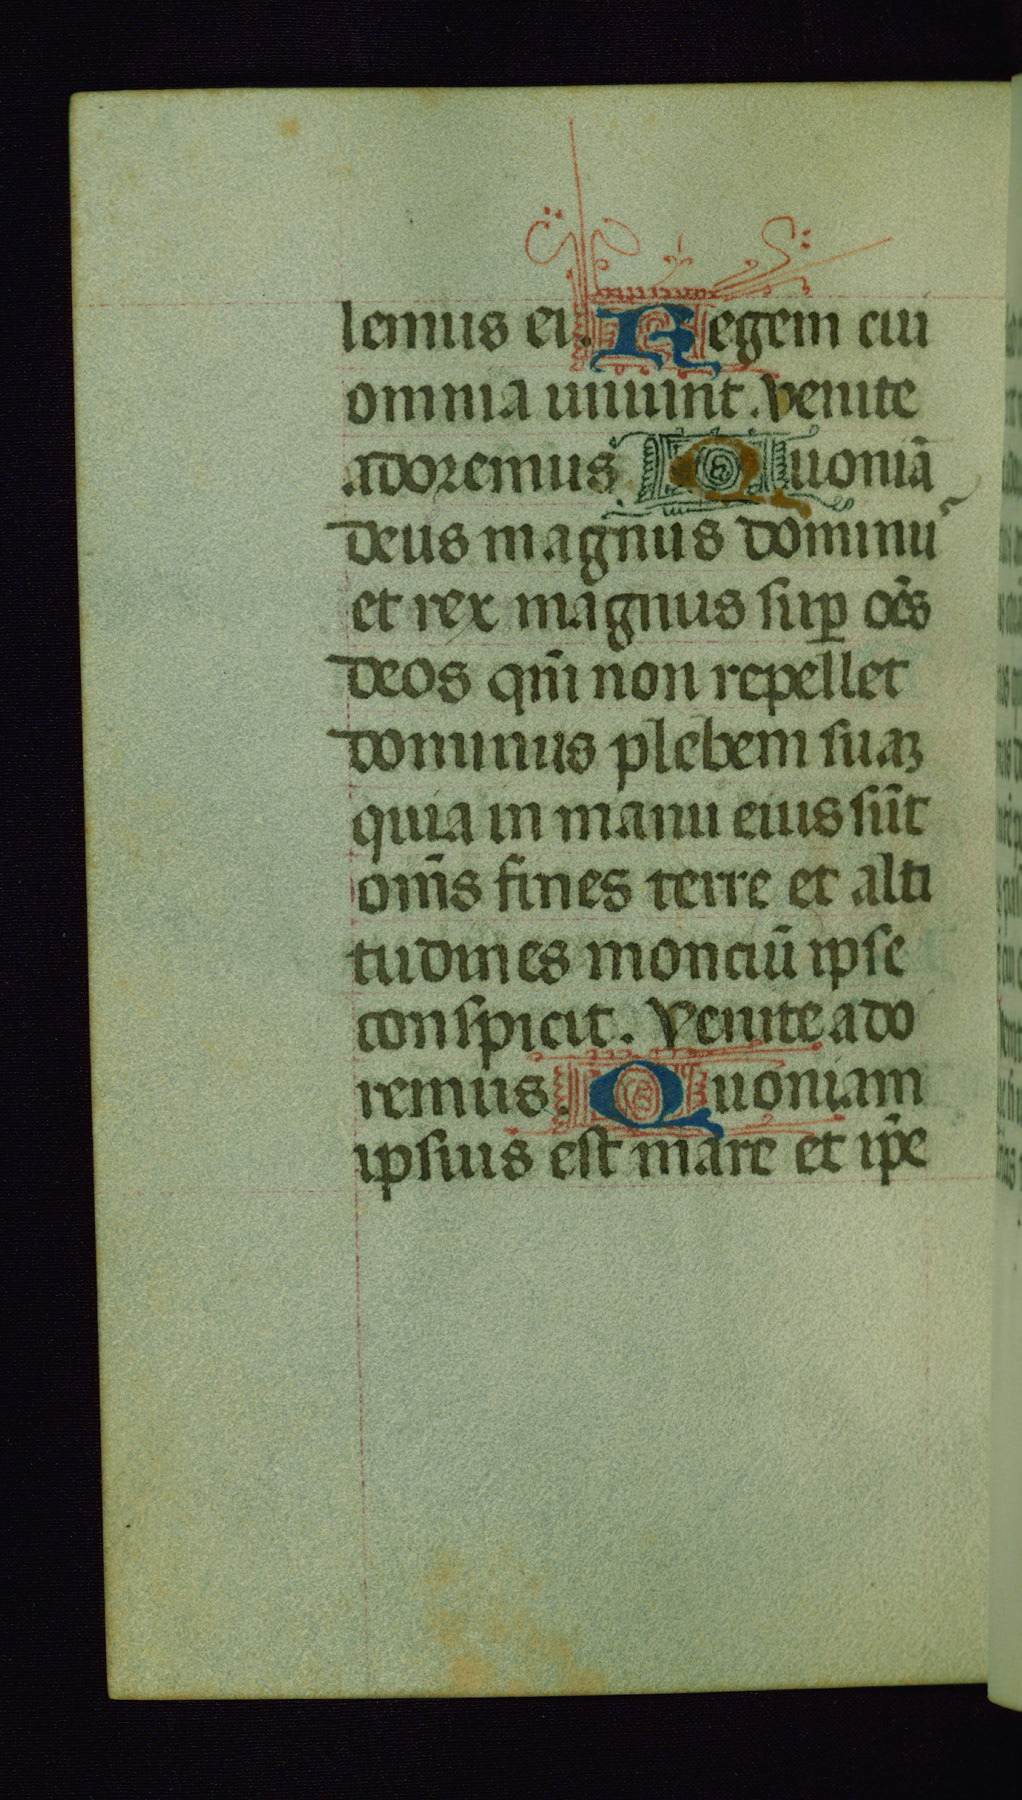 lemus ei. Regem cui
omnia uiuunt. Venite
adoremus Quoniā
deus magnus dominū
et rex magnus suꝑ oēs
deos qm̄ non repellet
dominus plebem suaꝫ
quia in manu eius sūt
om̄s fines terre et alti
tudines monciū ipse
conspicit. Venite ado
remus. Quoniam
ipsius est mare et ip̄e